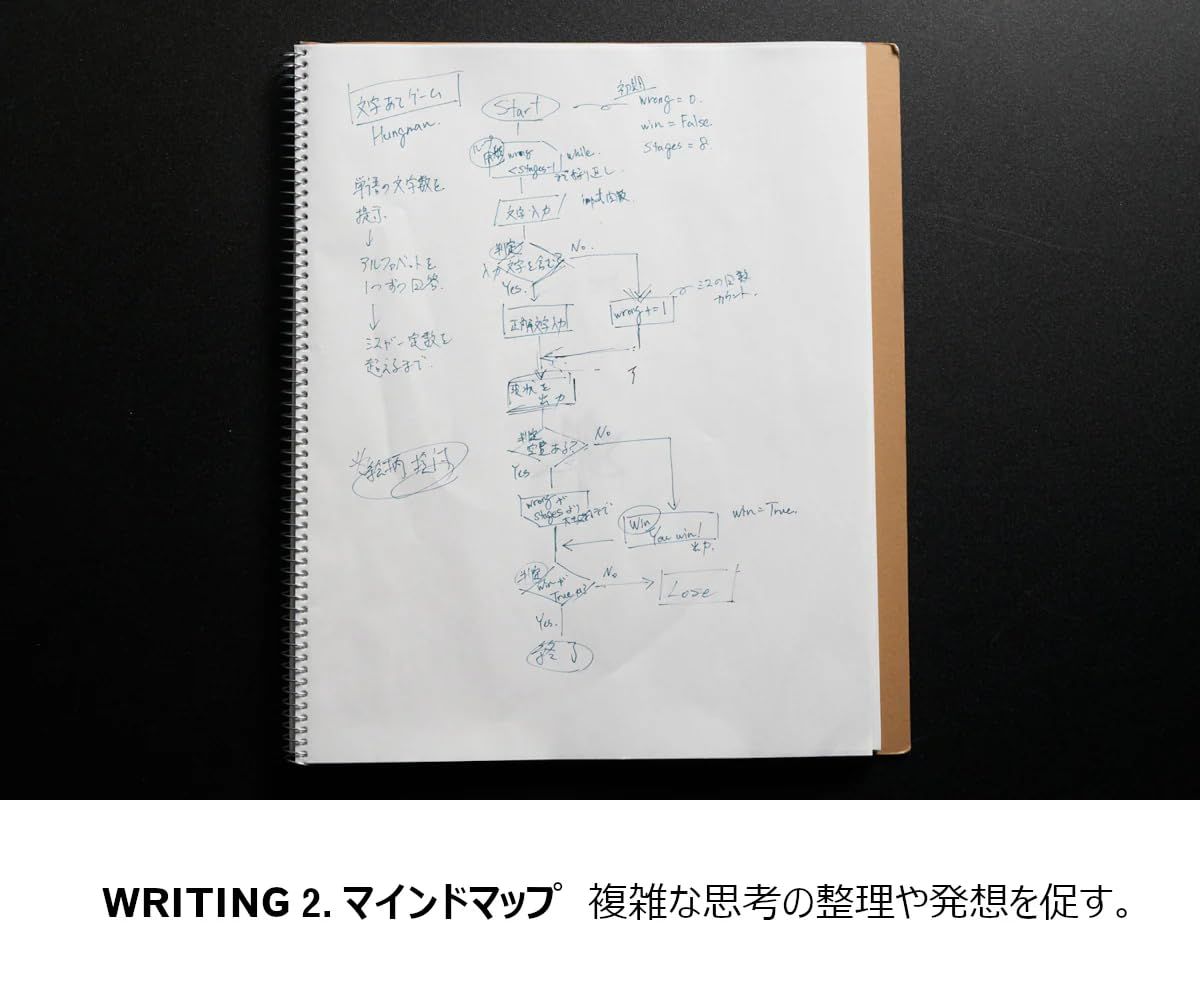 文字あてゲーム
Hungman.
単語の文字数を
提示.
↓
アルファベットを
1つずつ回答.
↓
ミスが一定数を
超えるまで.
Start
初期
wrong = 0.
win = False.
stages = 8.
ループ
wrong
< stages-1
while.
まで繰り返し
文字入力
判定
入力文字を含む?
No.
Yes.
正解文字入力
wrong += 1
ミスの回数
カウント.
現状を
出力
判定
空量ある?
No
Yes
wrongが
stagesより
Win
You win!
出力.
win = True.
判定
winが
True
No
Lose
Yes.
終了
WRITING 2. マインドマップ 複雑な思考の整理や発想を促す。